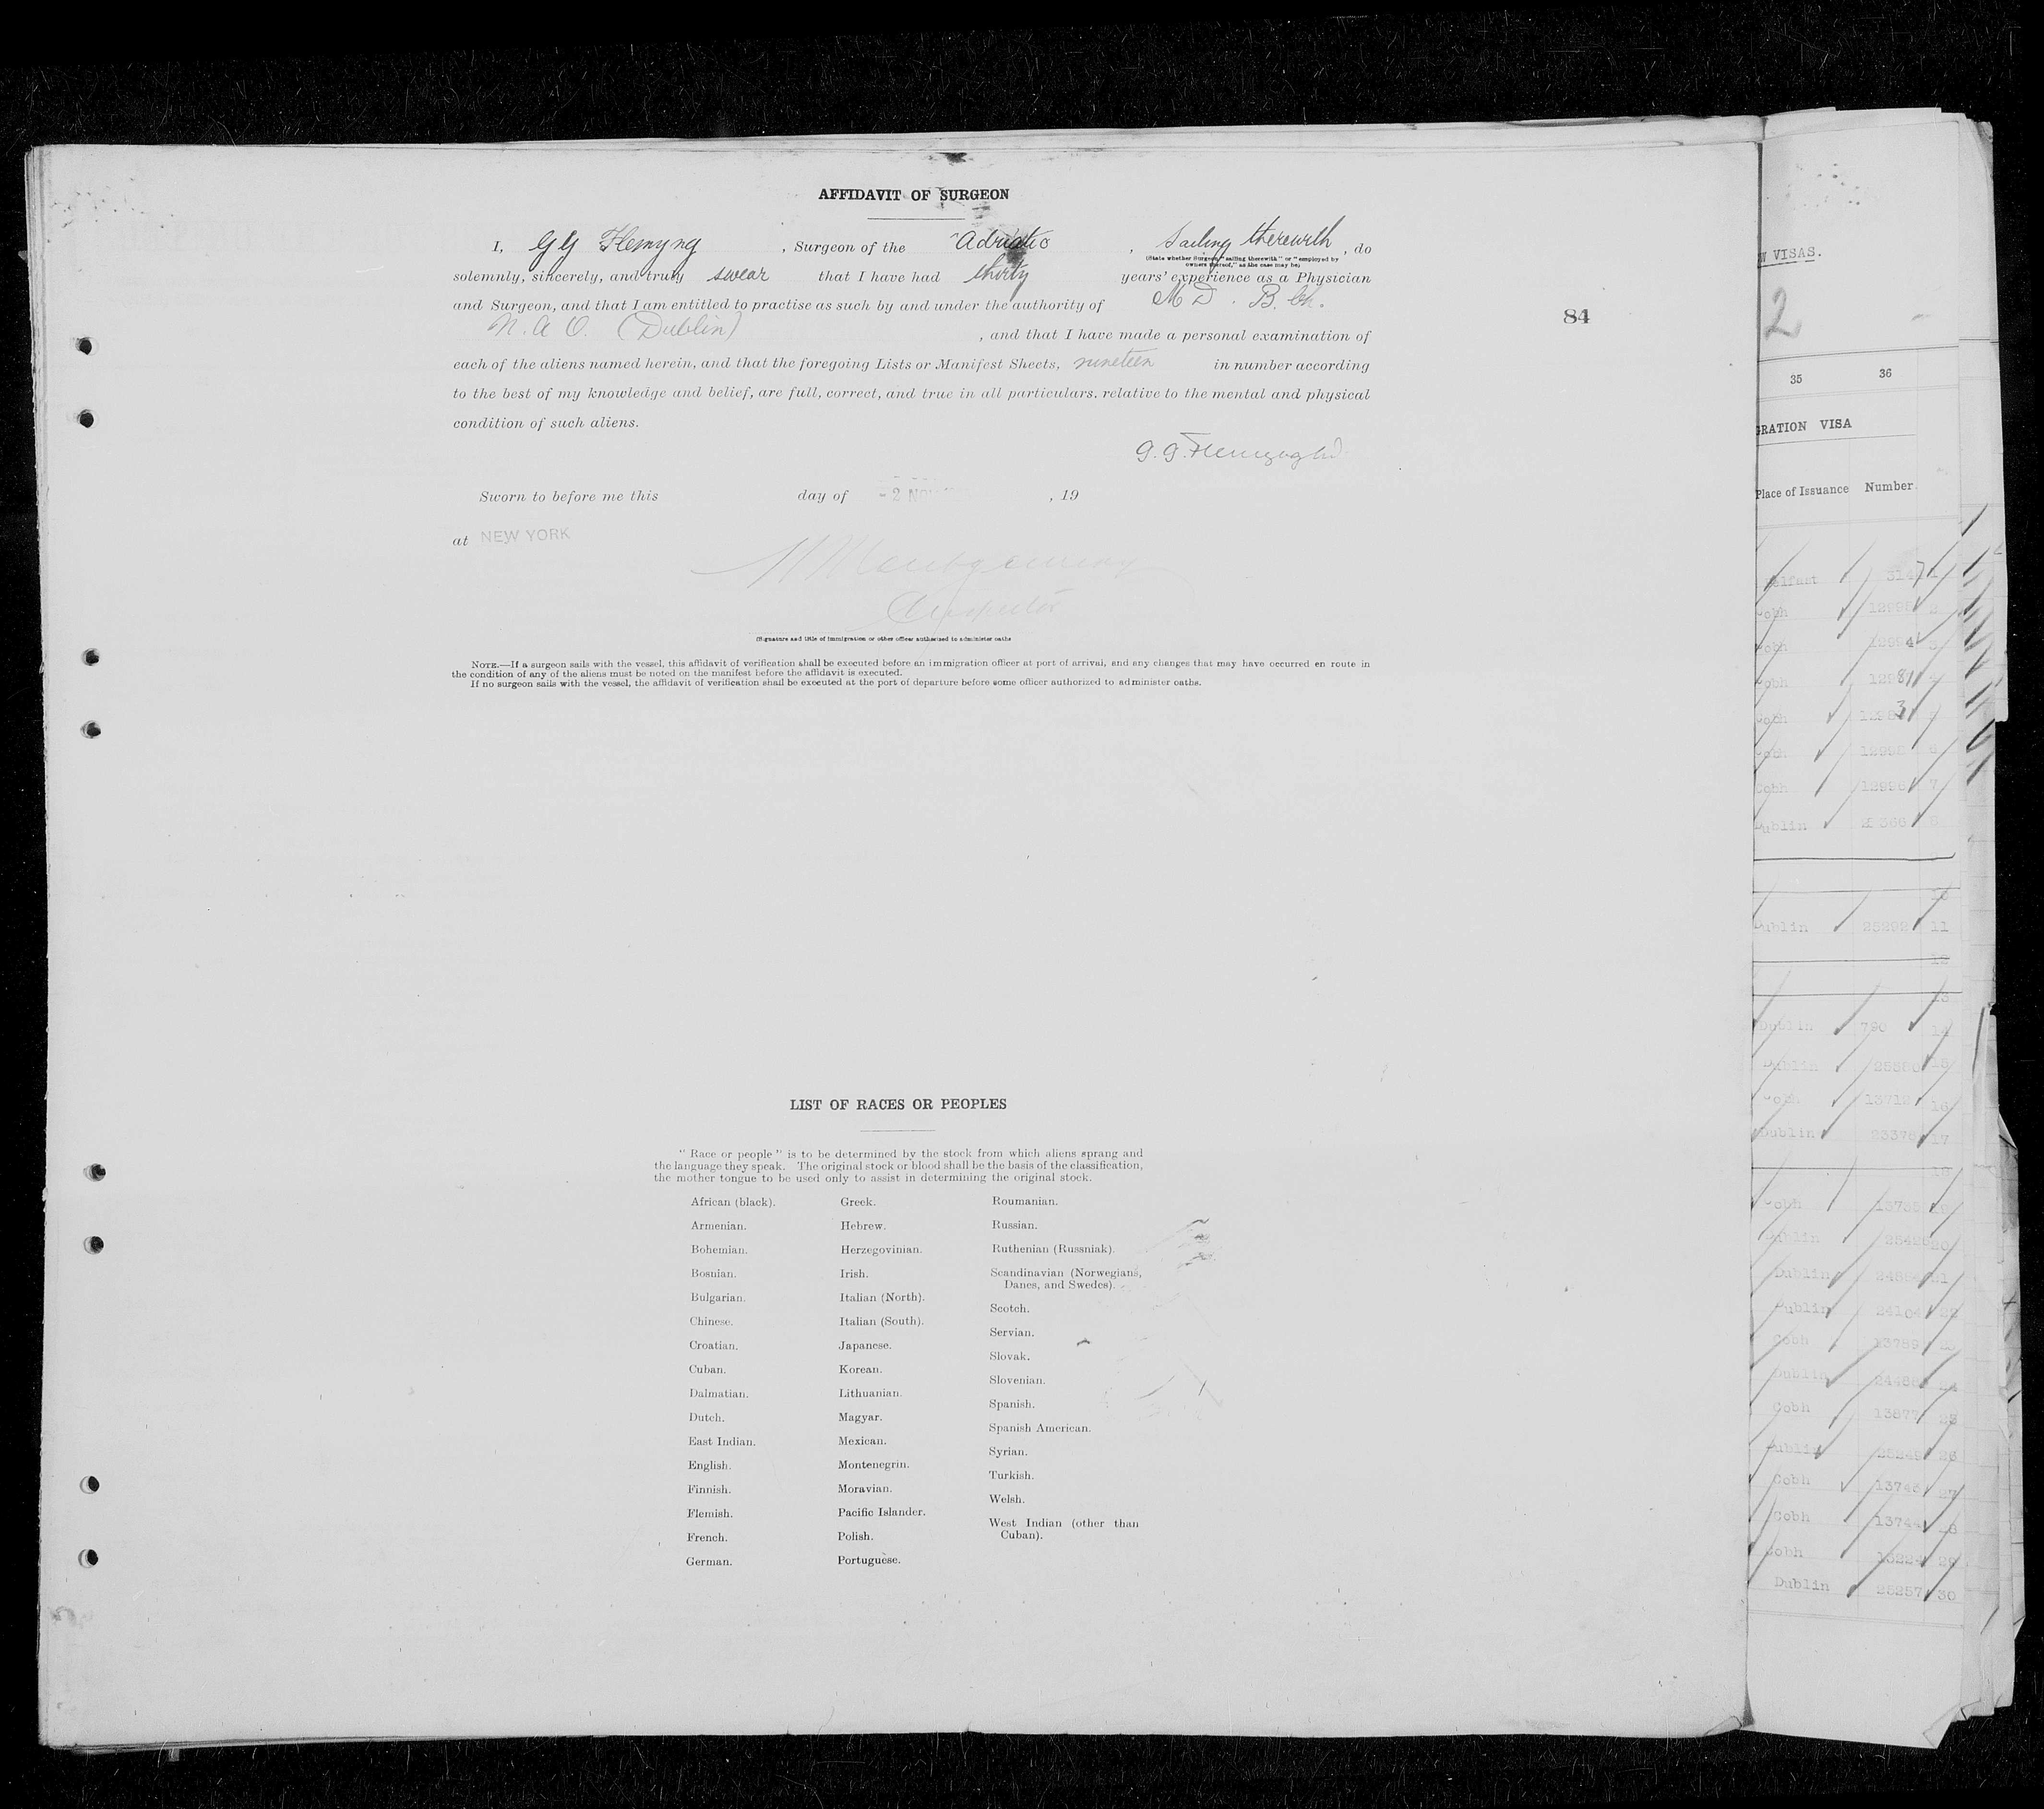 AFFIDAVIT OF SURGEON
I, G G Flemyng, Surgeon of the "Adriatic, Sailing therewith, do
(State whether Surgeon "sailing therewith" or "employed by
owners thereof," as the case may be)
solemnly, sincerely, and truly swear that I have had thirty years' experience as a Physician
and Surgeon, and that I am entitled to practise as such by and under the authority of M D. B. Ch.
(Dublin), and that I have made a personal examination of
each of the aliens named herein, and that the foregoing Lists or Manifest Sheets, nineteen in number according
to the best of my knowledge and belief, are full, correct, and true in all particulars. relative to the mental and physical
condition of such aliens.
Sworn to before me this day of - 2 NOV, 19
at NEW YORK
Inspector
(Signature and title of immigration or other officer authorized to administer oaths
NOTE.—If a surgeon sails with the vessel, this affidavit of verification shall be executed before an immigration officer at port of arrival, and any changes that may have occurred en route in
the condition of any of the aliens must be noted on the manifest before the affidavit is executed.
If no surgeon sails with the vessel, the affidavit of verification shall be executed at the port of departure before some officer authorized to administer oaths.
84
LIST OF RACES OR PEOPLES
"Race or people" is to be determined by the stock from which aliens sprang and
the language they speak. The original stock or blood shall be the basis of the classification,
the mother tongue to be used only to assist in determining the original stock.
African (black).
Armenian.
Bohemian.
Bosnian.
Bulgarian.
Chinese.
Croatian.
Cuban.
Dalmatian.
Dutch.
East Indian.
English.
Finnish.
Flemish.
French.
German.
Greek.
Hebrew.
Herzegovinian.
Irish.
Italian (North).
Italian (South).
Japanese.
Korean.
Lithuanian.
Magyar.
Mexican.
Montenegrin.
Moravian.
Pacific Islander.
Polish.
Portuguese.
Roumanian.
Russian.
Ruthenian (Russniak).
Scandinavian (Norwegians,
Danes, and Swedes).
Scotch.
Servian.
Slovak.
Slovenian.
Spanish.
Spanish American.
Syrian.
Turkish.
Welsh.
West Indian (other than
Cuban).
VISAS.
2
35 36
GRATION VISA
Place of Issuance Number
elfast
obh
obh
obh
obh
obh
Cobh 7
Dublin
10
Dublin 25292 11
12
13
Dublin 790 14
Dublin
Cobh 13712 16
Dublin 17
Cobh
Dublin
Dublin
Dublin 24104
Cobh 13789
Dublin
Cobh 13877 25
Dublin 25249 26
Cobh 27
Cobh 13744
Cobh 29
Dublin 25257 30